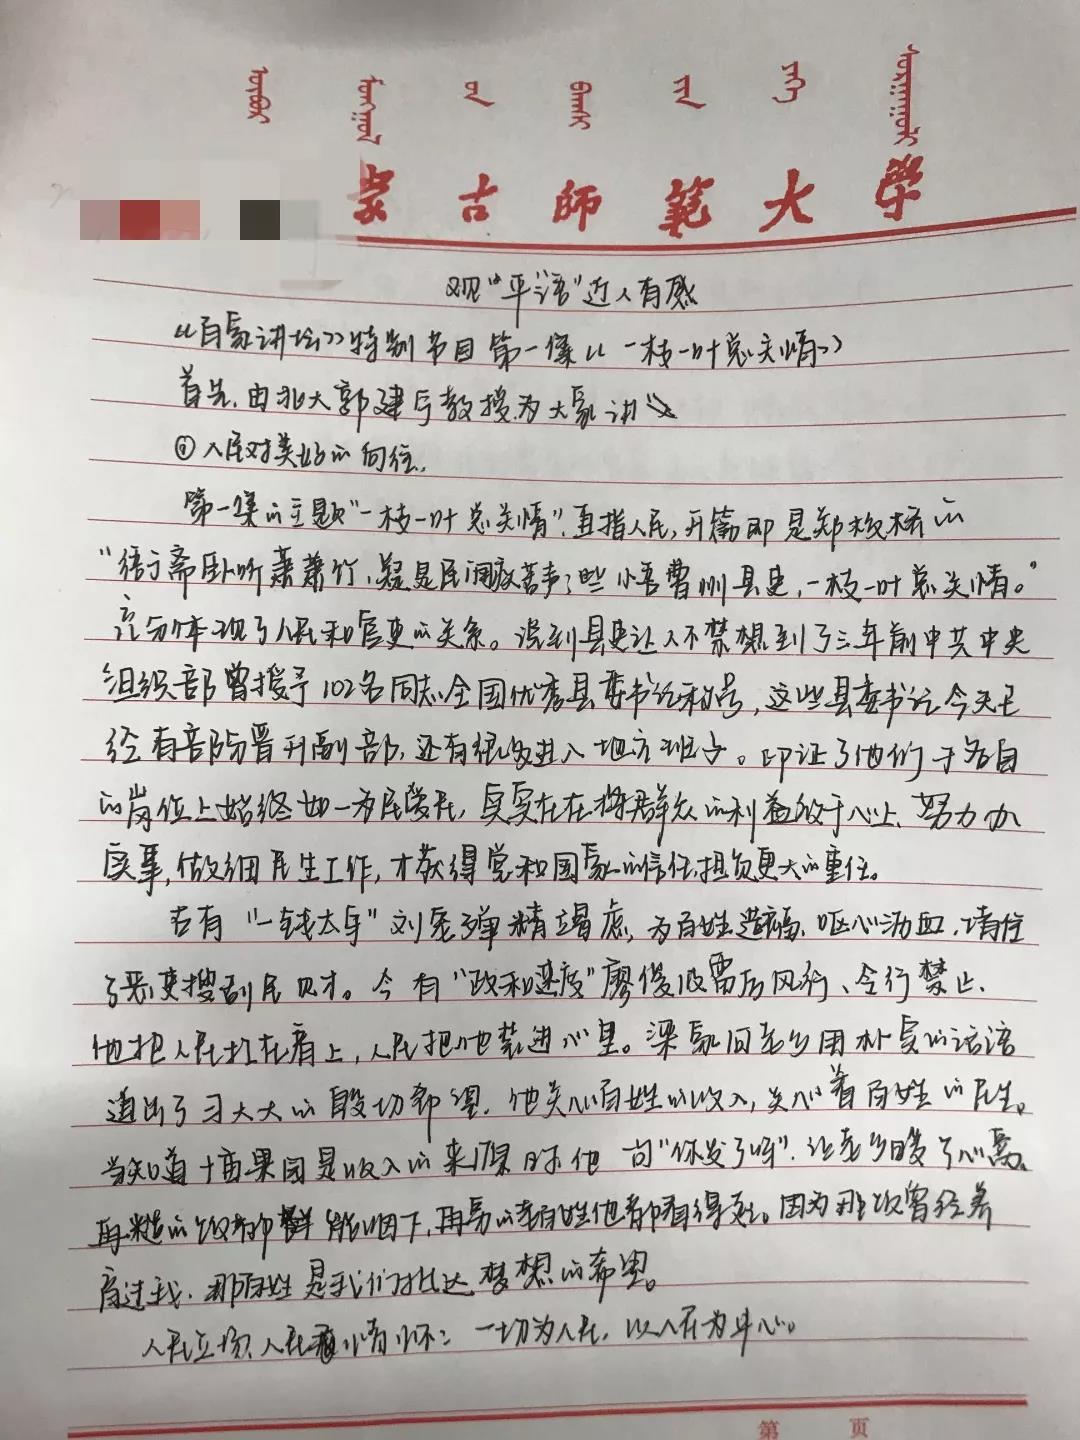 蒙古師範大學
观“平语”近人有感
《百家讲坛》特别节目第一集《一枝一叶总关情》
首先,由北大郭建宁教授为大家讲
①人民对美好的向往,
第一集的主题“一枝一叶总关情”,直指人民,开篇即是郑板桥的
“衙斋卧听萧萧竹,疑是民间疾苦声;些小吾曹州县吏,一枝一叶总关情。”
充分体现了人民和官吏的关系。说到县吏让人不禁想到了三年前中共中央
组织部曾授予102名同志全国优秀县委书记称号,这些县委书记今天已
经有部分晋升副部,还有很多进入地方班子。印证了他们于各自
的岗位上始终如一为民爱民,实实在在将群众的利益放于心上、努力办
实事,做细民生工作,才获得党和国家的信任,担负更大的重任。
古有“一钱太守”刘宠殚精竭虑,为百姓造福、呕心沥血,
搜刮民财。今有“政和速度”廖俊波雷厉风行、令行禁止、
他把人民扛在肩上,人民把他装进心里。梁家河老乡用朴实的话语
道出了习大大的殷切希望,他关心百姓的收入,关心着百姓的民生。
当知道十亩果园是收入的来源时他问“你发了呀”,让老乡暖了心窝。
再糙的饭都能咽下,再穷的老百姓他都看得起。因为那次曾经养
育过我,那百姓是我们抵达梦想的希望。
人民立场、人民情怀:一切为人民,以人民为中心。
第 页